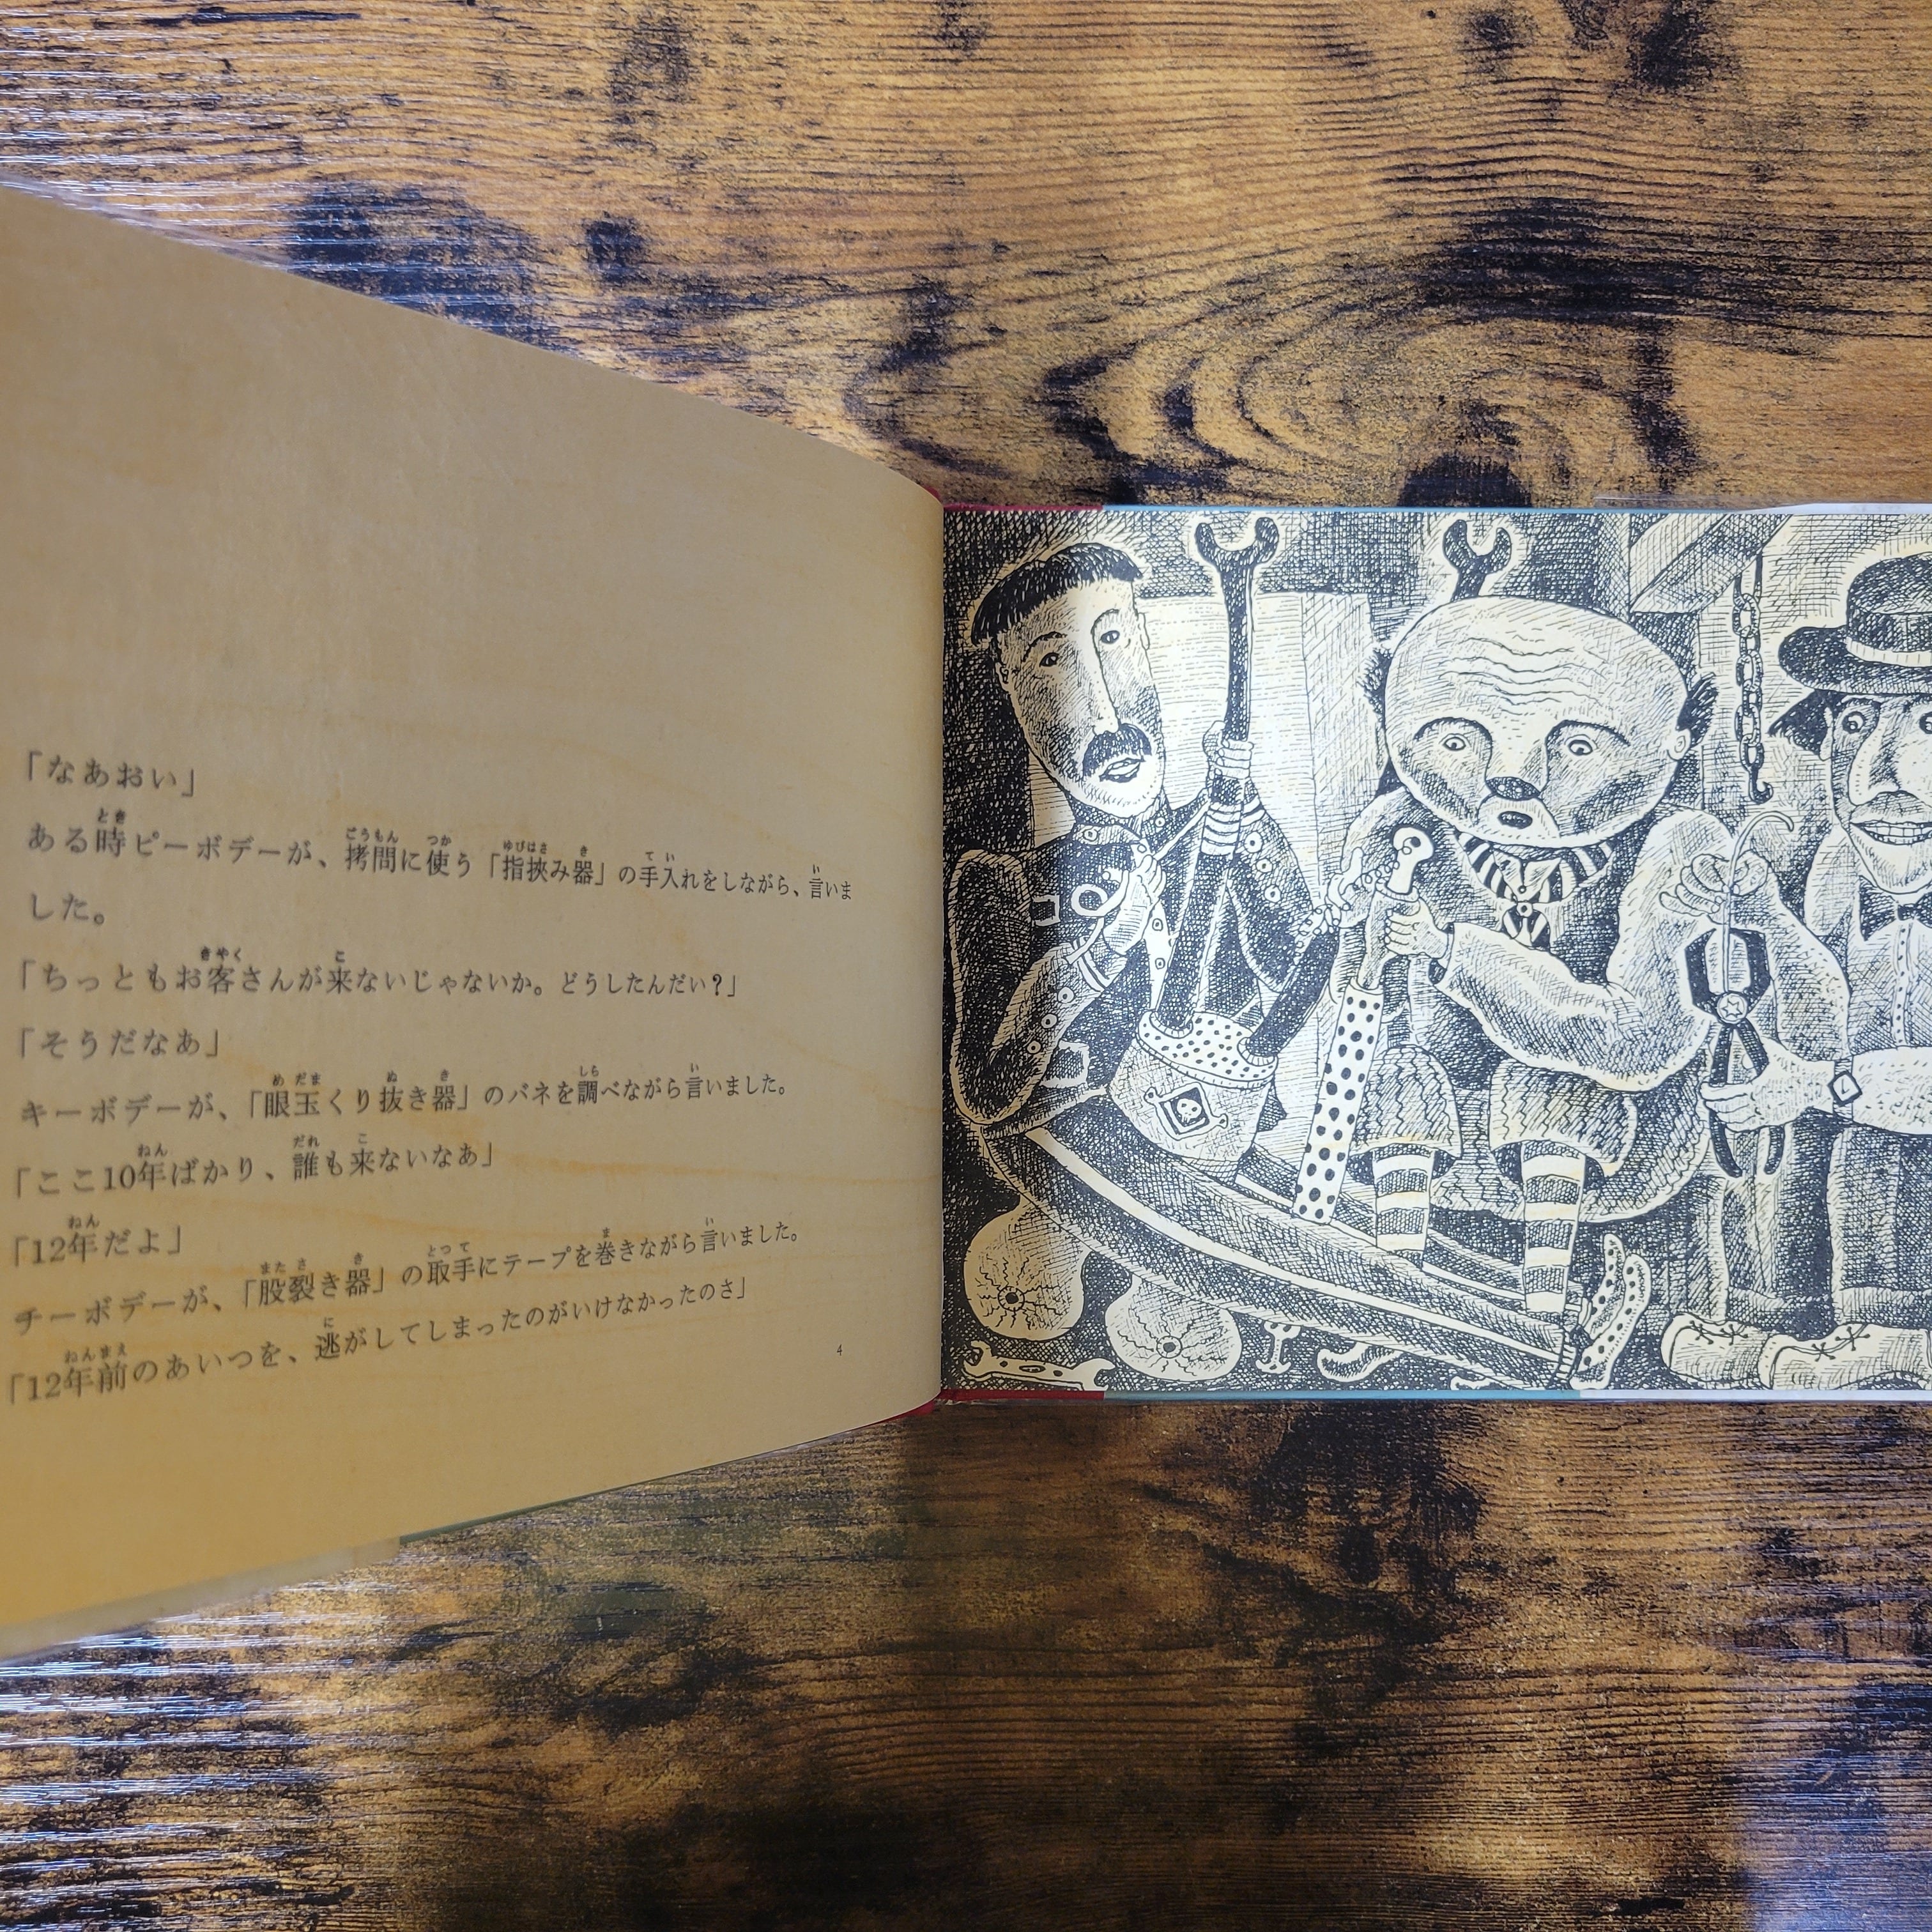 「なあおい」
ある時ピーボデーが、拷問に使う「指挾み器」の手入れをしながら、言いま
した。
「ちっともお客さんが来ないじゃないか。どうしたんだい？」
「そうだなあ」
キーボデーが、「眼玉くり抜き器」のバネを調べながら言いました。
「ここ10年ばかり、誰も来ないなあ」
「12年だよ」
チーボデーが、「股裂き器」の取手にテープを巻きながら言いました。
「12年前のあいつを、逃がしてしまったのがいけなかったのさ」
4